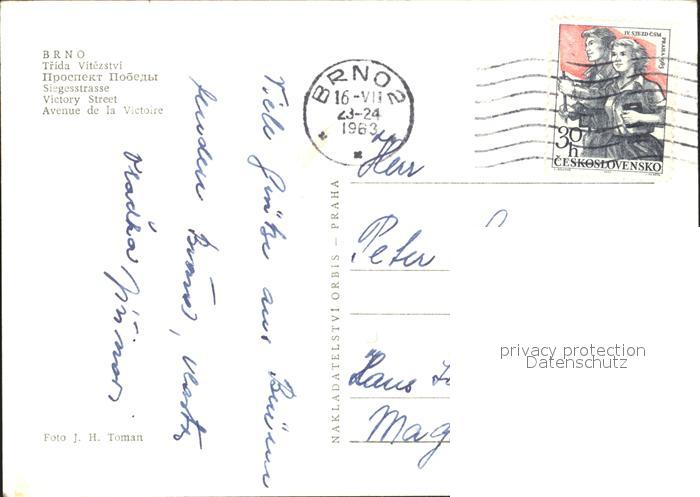 BRNO
Třída Vítězství
Проспект Победы
Siegesstrasse
Victory Street
Avenue de la Victoire
BRNO 2
16-VII
23-24
1963
IV. SJEZD ČSM
PRAHA 1963
30
h
ČESKOSLOVENSKO
Viele Grüße aus Brünn
senden
Herr
Peter
Hans
Mag
NAKLADATELSTVÍ ORBIS – PRAHA
Foto J. H. Toman
privacy protection
Datenschutz